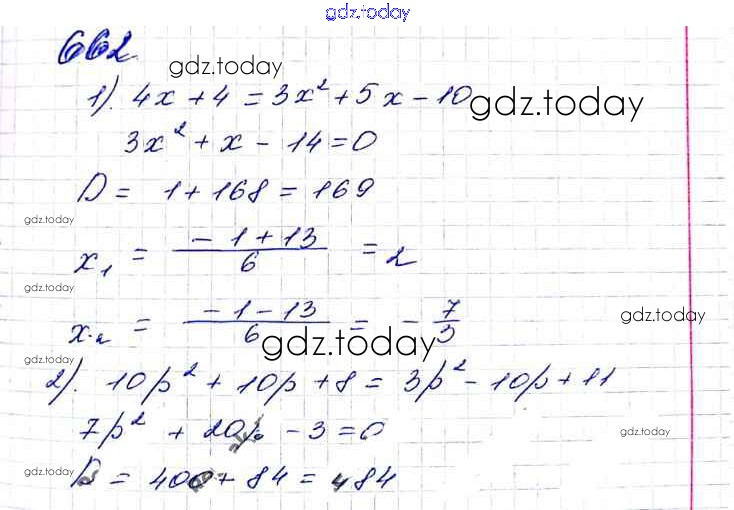 gdz.today
662
gdz.today
1). 4x + 4 = 3x² + 5x - 10
gdz.today
3x² + x - 14 = 0
D = 1 + 168 = 169
gdz.today
x₁ = (-1 + 13)/6 = 2
gdz.today
x₂ = (-1 - 13)/6 = -7/3
gdz.today
gdz.today
gdz.today
2). 10p² + 10p + 8 = 3p² - 10p + 11
7p² + 20p - 3 = 0
gdz.today
gdz.today
D = 400 + 84 = 484